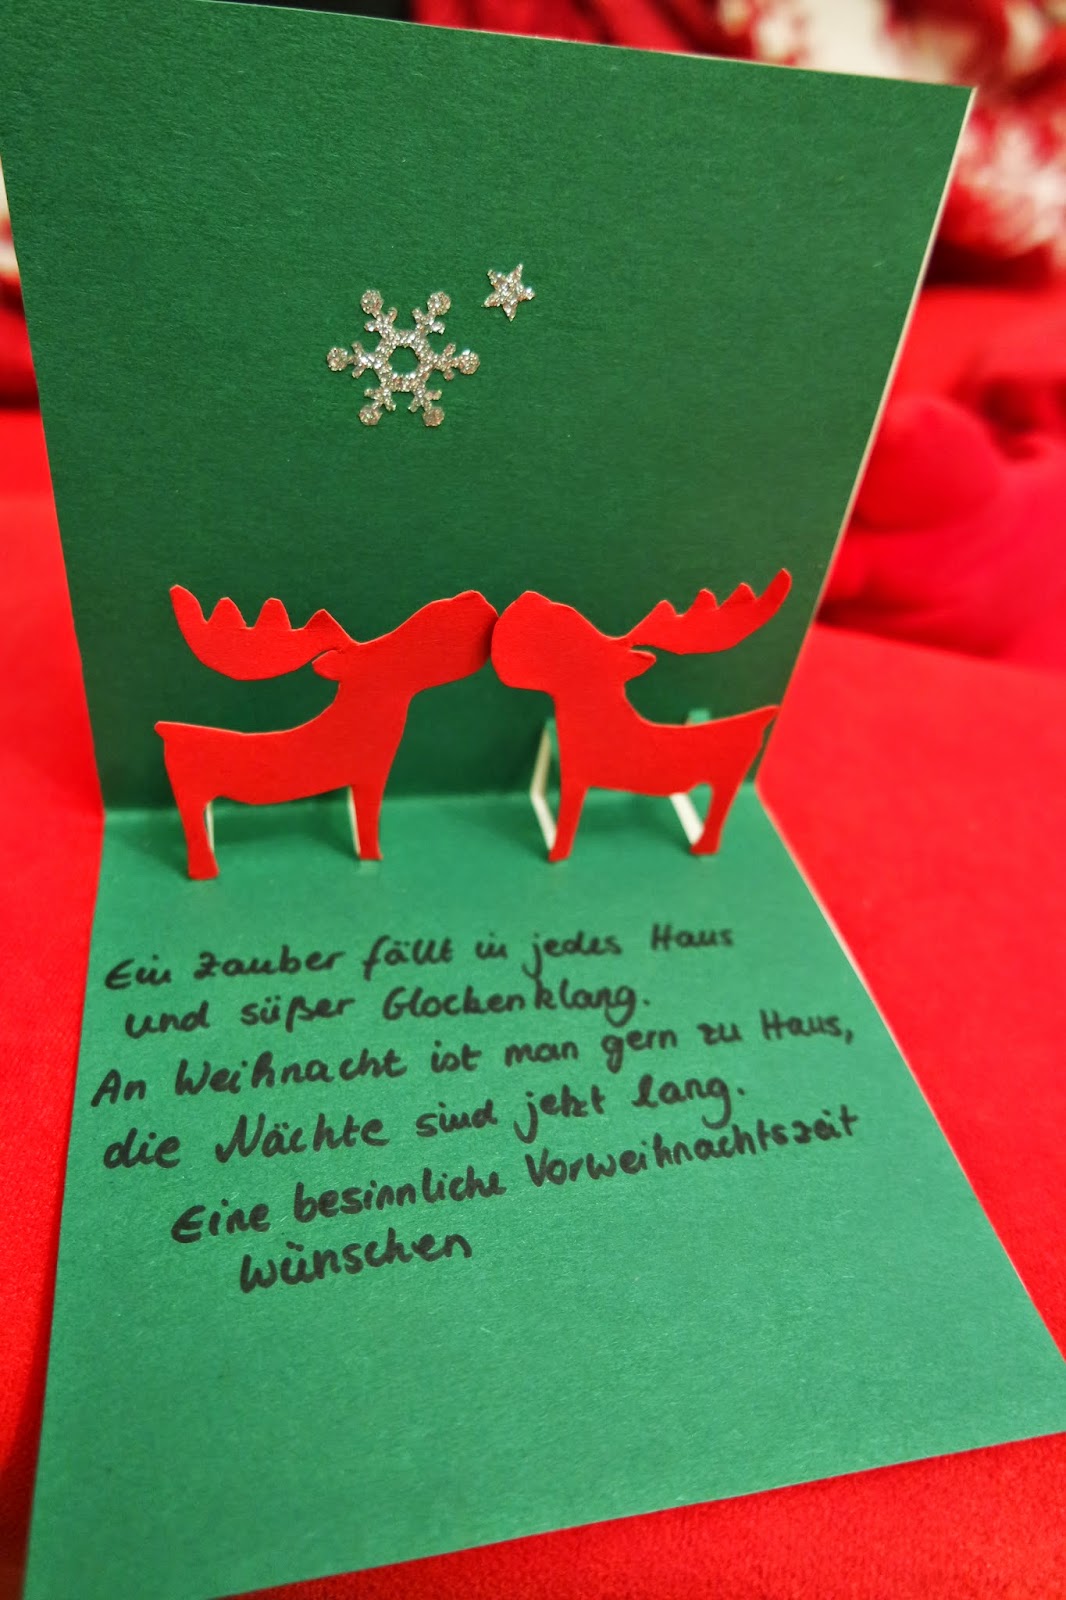 Ein Zauber fällt in jedes Haus
und süßer Glockenklang.
An Weihnacht ist man gern zu Haus,
die Nächte sind jetzt lang.
Eine besinnliche Vorweihnachtszeit
wünschen